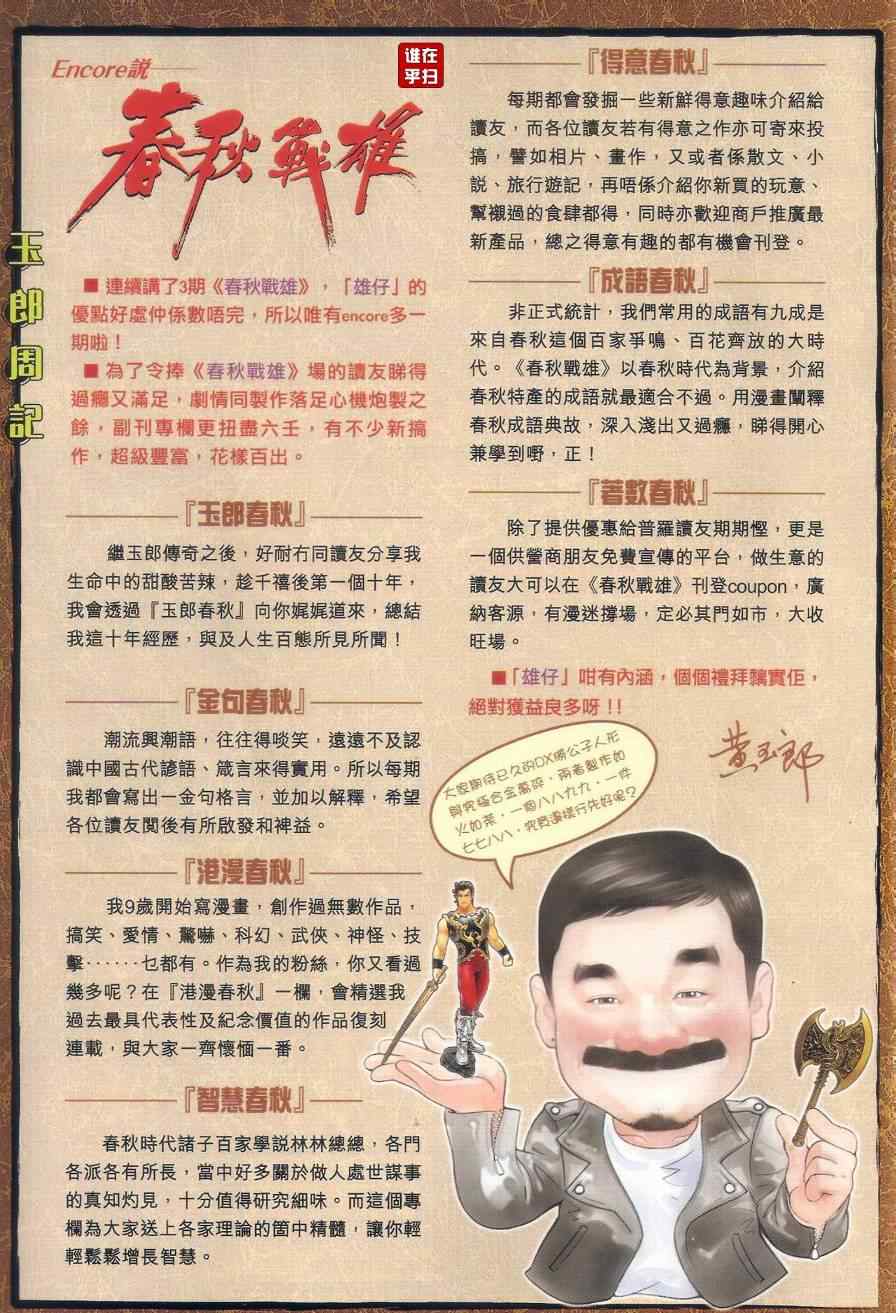 Encore説
春秋戰雄
谁在
乎扫
玉郎周記
■ 連續講了3期《春秋戰雄》，「雄仔」的
優點好處仲係數唔完，所以唯有encore多一
期啦！
■ 為了令捧《春秋戰雄》場的讀友睇得
過癮又滿足，劇情同製作落足心機炮製之
餘，副刊專欄更扭盡六壬，有不少新搞
作，超級豐富，花樣百出。
『玉郎春秋』
繼玉郎傳奇之後，好耐冇同讀友分享我
生命中的甜酸苦辣，趁千禧後第一個十年，
我會透過『玉郎春秋』向你娓娓道來，總結
我這十年經歷，與及人生百態所見所聞！
『金句春秋』
潮流興潮語，往往得啖笑，遠遠不及認
識中國古代諺語、箴言來得實用。所以每期
我都會寫出一金句格言，並加以解釋，希望
各位讀友閱後有所啟發和裨益。
『港漫春秋』
我9歲開始寫漫畫，創作過無數作品，
搞笑、愛情、驚嚇、科幻、武俠、神怪、技
擊······乜都有。作為我的粉絲，你又看過
幾多呢？在『港漫春秋』一欄，會精選我
過去最具代表性及紀念價值的作品復刻
連載，與大家一齊懷愐一番。
『智慧春秋』
春秋時代諸子百家學説林林總總，各門
各派各有所長，當中好多關於做人處世謀事
的真知灼見，十分值得研究細味。而這個專
欄為大家送上各家理論的箇中精髓，讓你輕
輕鬆鬆增長智慧。
『得意春秋』
每期都會發掘一些新鮮得意趣味介紹給
讀友，而各位讀友若有得意之作亦可寄來投
搞，譬如相片、畫作，又或者係散文、小
説、旅行遊記，再唔係介紹你新買的玩意、
幫襯過的食肆都得，同時亦歡迎商戶推廣最
新產品，總之得意有趣的都有機會刊登。
『成語春秋』
非正式統計，我們常用的成語有九成是
來自春秋這個百家爭鳴、百花齊放的大時
代。《春秋戰雄》以春秋時代為背景，介紹
春秋特產的成語就最適合不過。用漫畫闡釋
春秋成語典故，深入淺出又過癮，睇得開心
兼學到嘢，正！
『著數春秋』
除了提供優惠給普羅讀友期期慳，更是
一個供營商朋友免費宣傳的平台，做生意的
讀友大可以在《春秋戰雄》刊登coupon，廣
納客源，有漫迷撐場，定必其門如市，大收
旺場。
■「雄仔」咁有內涵，個個禮拜黐實佢，
絕對獲益良多呀！！
黃玉郎
大家期待已久的DX勝公子人形
與究極合金喬碎，兩者製作如
火如荼，一個八八九九，一件
七七八八，究竟邊樣行先好呢？